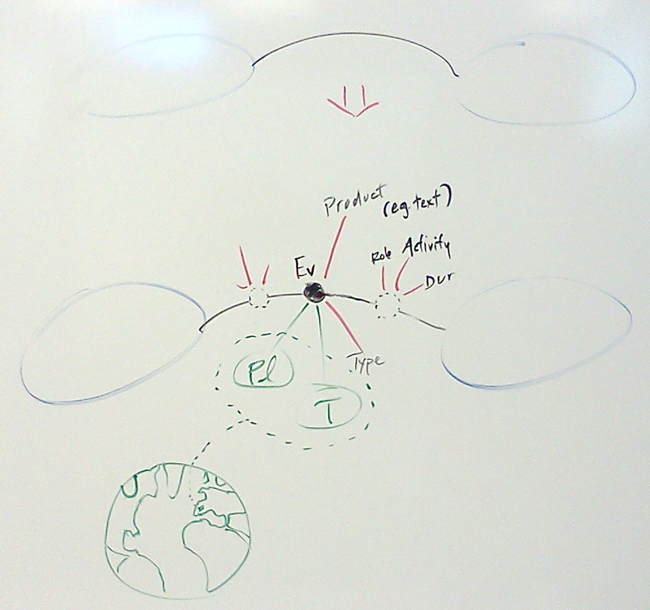 Product (eg. text)
Ev
Role
Activity
Dur
Type
Pl
T